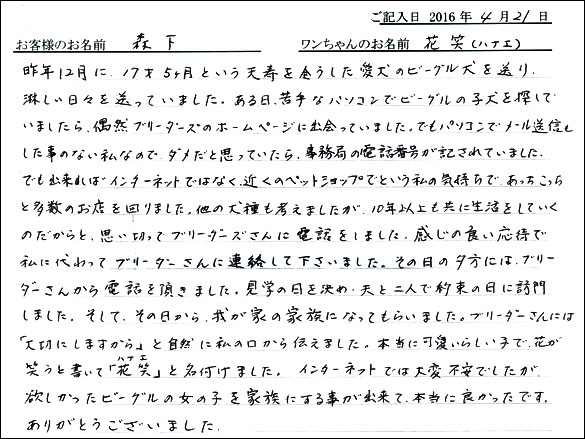 ご記入日 2016年4月21日
お客様のお名前 森下 ワンちゃんのお名前 花笑(ハナエ)
昨年12月に、17才5ヶ月という天寿を全うした愛犬のビーグル犬を送り、
淋しい日々を送っていました。ある日、苦手なパソコンでビーグルの子犬を探して
いましたら、偶然ブリーダーズのホームページに出会っていました。でもパソコンでメール送信も
した事のない私なので、ダメだと思っていたら、事務局の電話番号が記されていました。
でも出来ればインターネットではなく、近くのペットショップでという私の気持ちで、あっちこっち
と多数のお店を回りました。他の犬種も考えましたが、10年以上も共に生活をしていく
のだからと、思い切ってブリーダーズさんに電話をしました。感じの良い応待で
私に代わってブリーダーさんに連絡して下さいました。その日の夕方には、ブリー
ダーさんから電話を頂きました。見学の日を決め、夫と二人で約束の日に訪門
しました。そして、その日から、我が家の家族になってもらいました。ブリーダーさんには
「大切にしますから」と自然に私の口から伝えました。本当に可愛いらしい子で、花が
笑うと書いて「花笑(ハナエ)」と名付けました。インターネットでは大変不安でしたが、
欲しかったビーグルの女の子を家族にする事が出来て、本当に良かったです。
ありがとうございました。